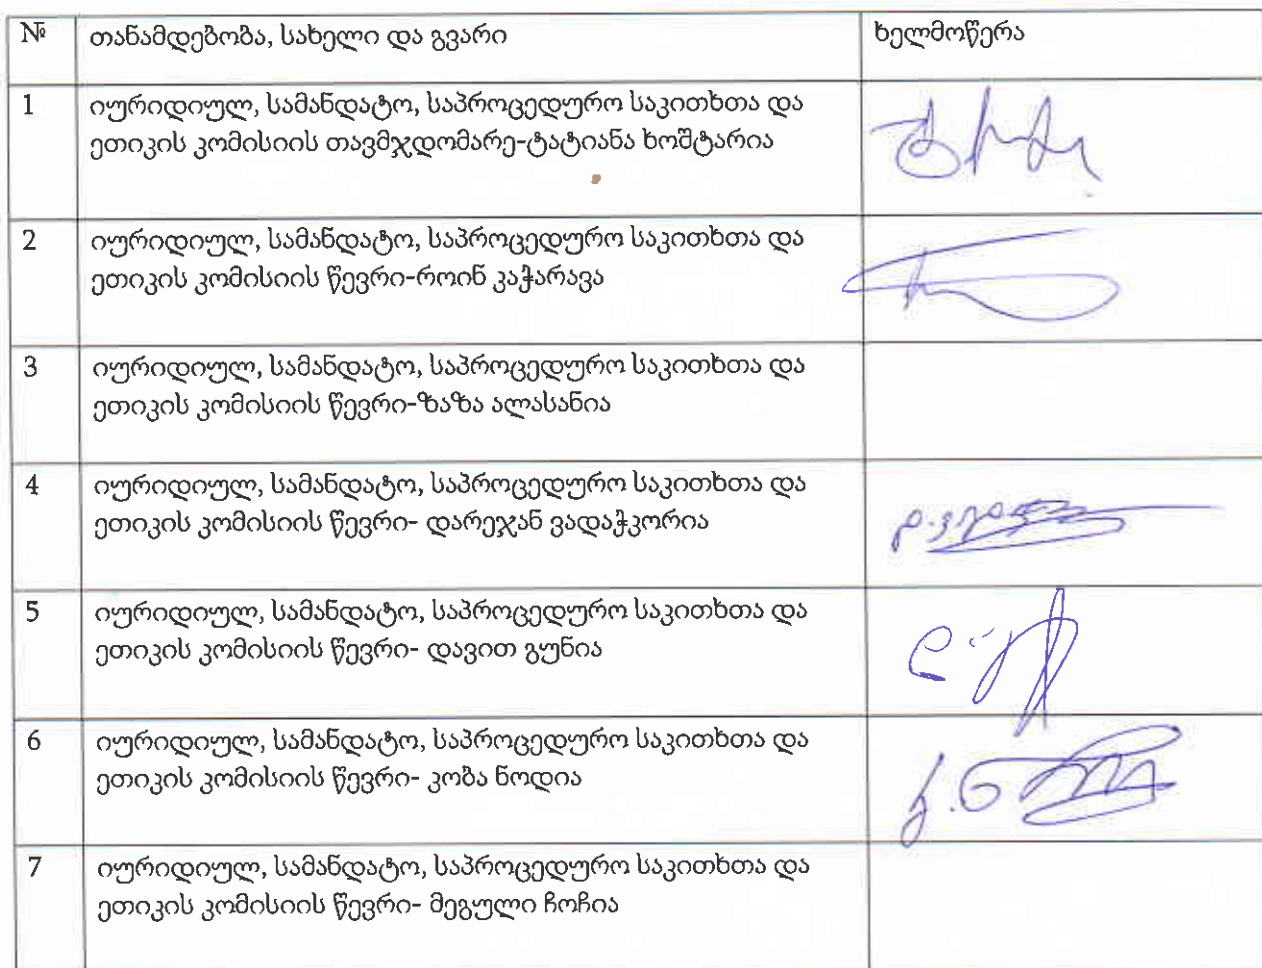 № თანამდებობა, სახელი და გვარი ხელმოწერა
1 იურიდიულ, სამანდატო, საპროცედურო საკითხთა და
ეთიკის კომისიის თავმჯდომარე-ტატიანა ხოშტარია
2 იურიდიულ, სამანდატო, საპროცედურო საკითხთა და
ეთიკის კომისიის წევრი-როინ კაჭარავა
3 იურიდიულ, სამანდატო, საპროცედურო საკითხთა და
ეთიკის კომისიის წევრი-ზაზა ალასანია
4 იურიდიულ, სამანდატო, საპროცედურო საკითხთა და
ეთიკის კომისიის წევრი- დარეჯან ვადაჭკორია
5 იურიდიულ, სამანდატო, საპროცედურო საკითხთა და
ეთიკის კომისიის წევრი- დავით გუნია
6 იურიდიულ, სამანდატო, საპროცედურო საკითხთა და
ეთიკის კომისიის წევრი- კობა ნოდია
7 იურიდიულ, სამანდატო, საპროცედურო საკითხთა და
ეთიკის კომისიის წევრი- მეგული ჩოჩია